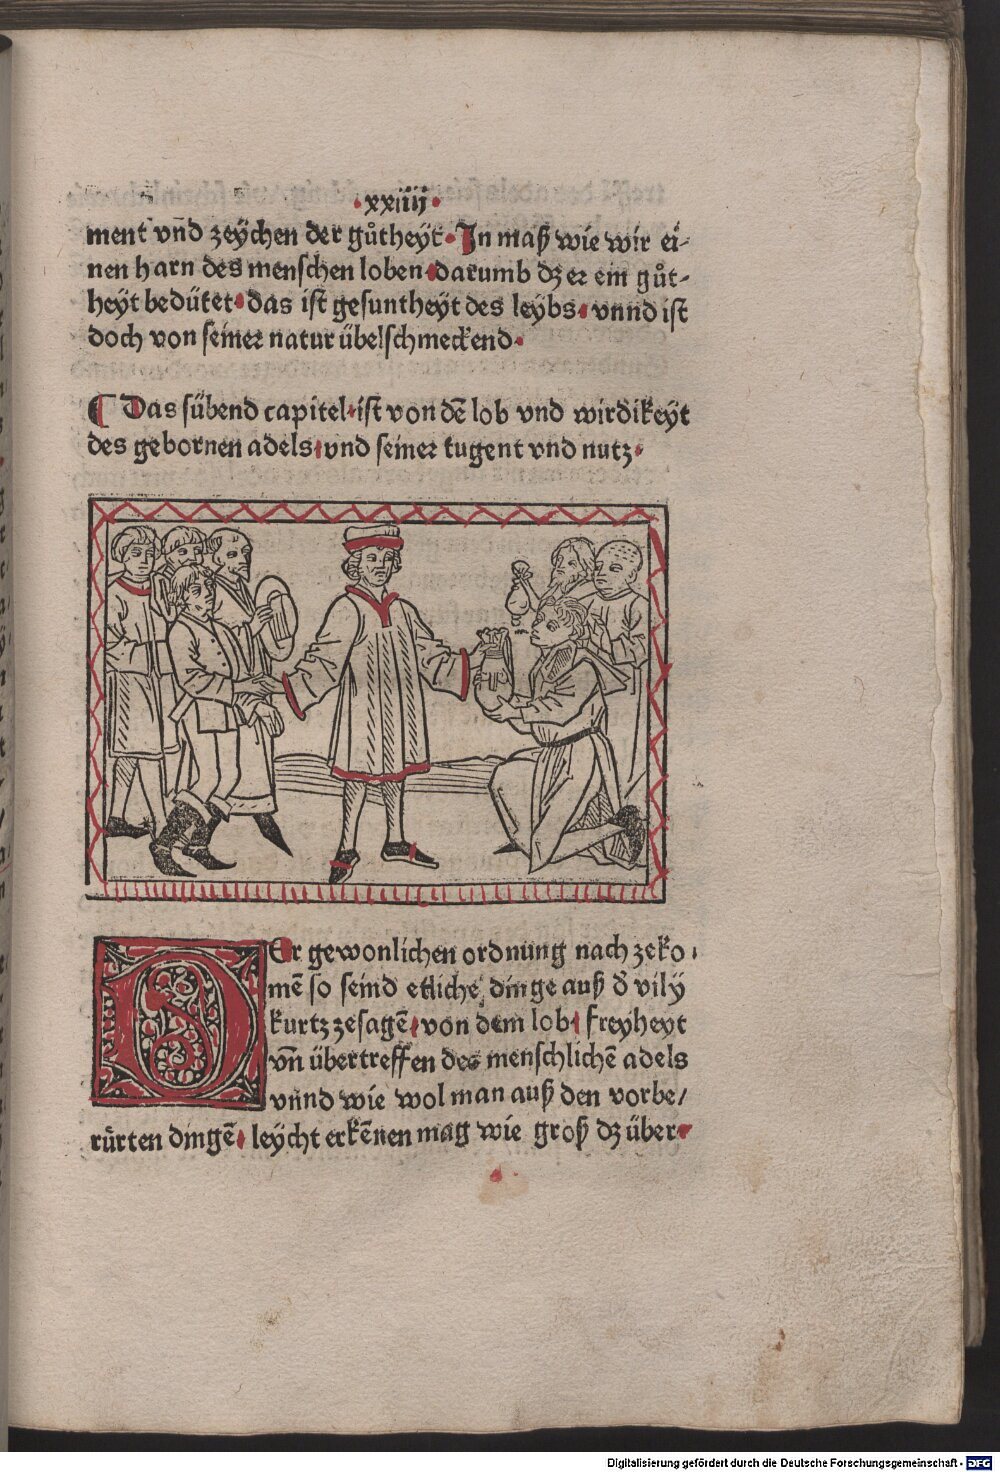 ·xxiiij·
ment vnd zeychen der gůtheyt· In maß wie wir ei⸗
nen harn des menschen loben· darumb dz er ein gůt⸗
heyt bedütet· das ist gesuntheyt des leybs· vnnd ist
doch von seiner natur übelschmeckend·
¶ Das sübend capitel· ist von dē lob vnd wirdikeyt
des gebornen adels· vnd seiner tugent vnd nutz·
DEr gewonlichen ordnung nach zeko⸗
mē so seind etliche dinge auß d̄ vily
kurtz zesagē· von dem lob· freyheyt
vn̄ übertreffen des menschlichē adels
vnnd wie wol man auß den vorbe/
rürten dingē· leycht erkēnen mag wie groß dz über·
Digitalisierung gefördert durch die Deutsche Forschungsgemeinschaft - DFG